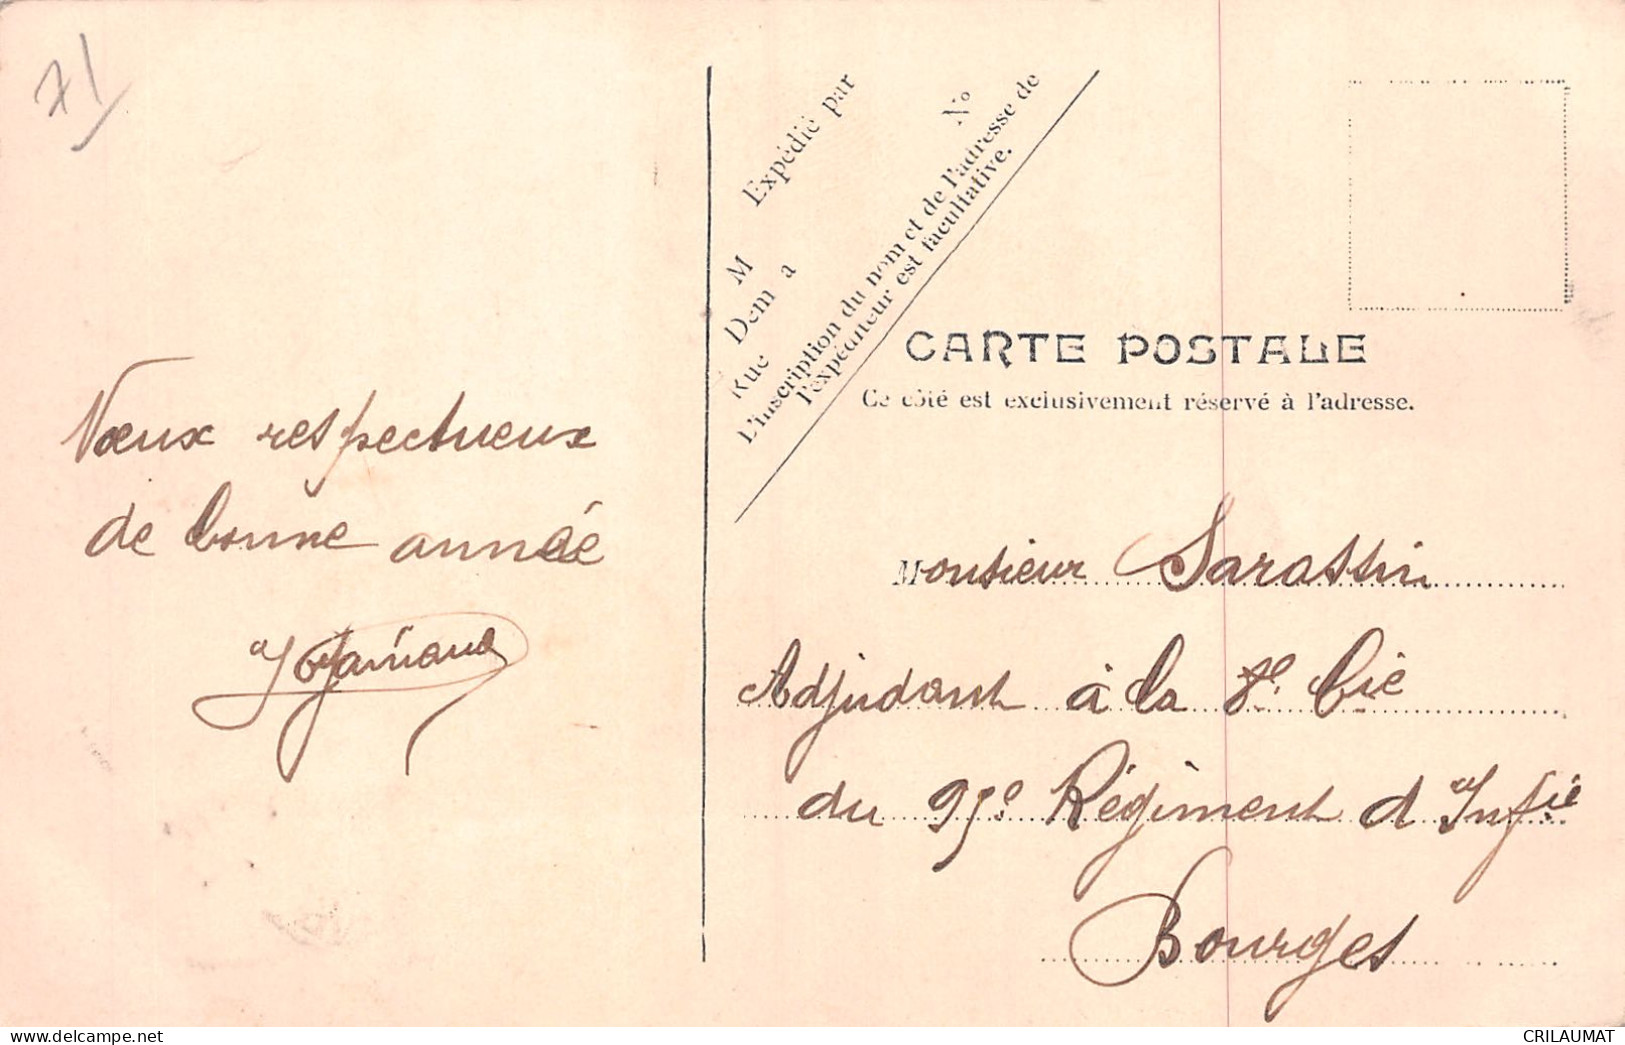 71
Expédié par
M
Dem a
Rue
N°
L'inscription du nom et de l'adresse de
l'expéditeur est facultative.
CARTE POSTALE
Ce côté est exclusivement réservé à l'adresse.
Vœux respectueux
de bonne année
Monsieur Sarassin
Adjudant à la 8e Cie
du 95e Régiment d'Infie
Bourges
CRILAUMAT